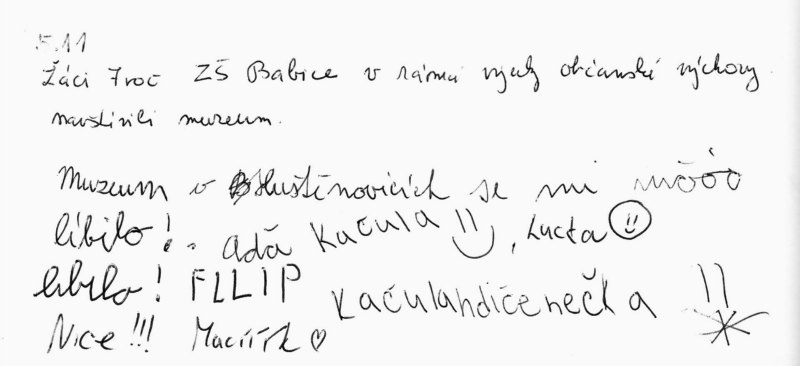 5.11
Žáci 7roč ZŠ Babice v rámci výuky občanské výchovy
navštívili muzeum.
Muzeum v Huštěnovicích se mi móóó
líbilo! Adá Kačula , Lucta
líbilo! FILIP Kačulandičenečka
Nice!!! ♡